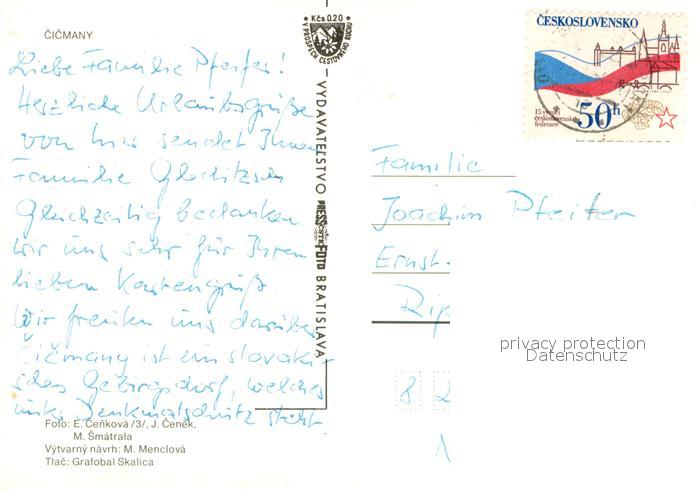 ČIČMANY
Liebe Familie Pfeifer!
Herzliche Urlaubsgrüße
von hier sendet Ihnen
Familie
Gleichzeitig bedanken
wir uns sehr für Ihren
lieben Kartengruß.
Wir freuten uns darüber
Čičmany ist ein slovaki-
sches Gebirgsdorf, welches
unter Denkmalschutz steht
Foto: E. Čeňková /3/, J. Čeněk,
M. Šmátrala
Výtvarný návrh: M. Menclová
Tlač: Grafobal Skalica
Kčs 0.20
V PROSPECH CESTOVNÉHO RUCHU
VYDAVATEĽSTVO PRESSFOTO BRATISLAVA
ČESKOSLOVENSKO
15. výročí
československé
federace
50h
Familie
Joachim Pfeifer
Ernst-
Rip
privacy protection
Datenschutz
8 2